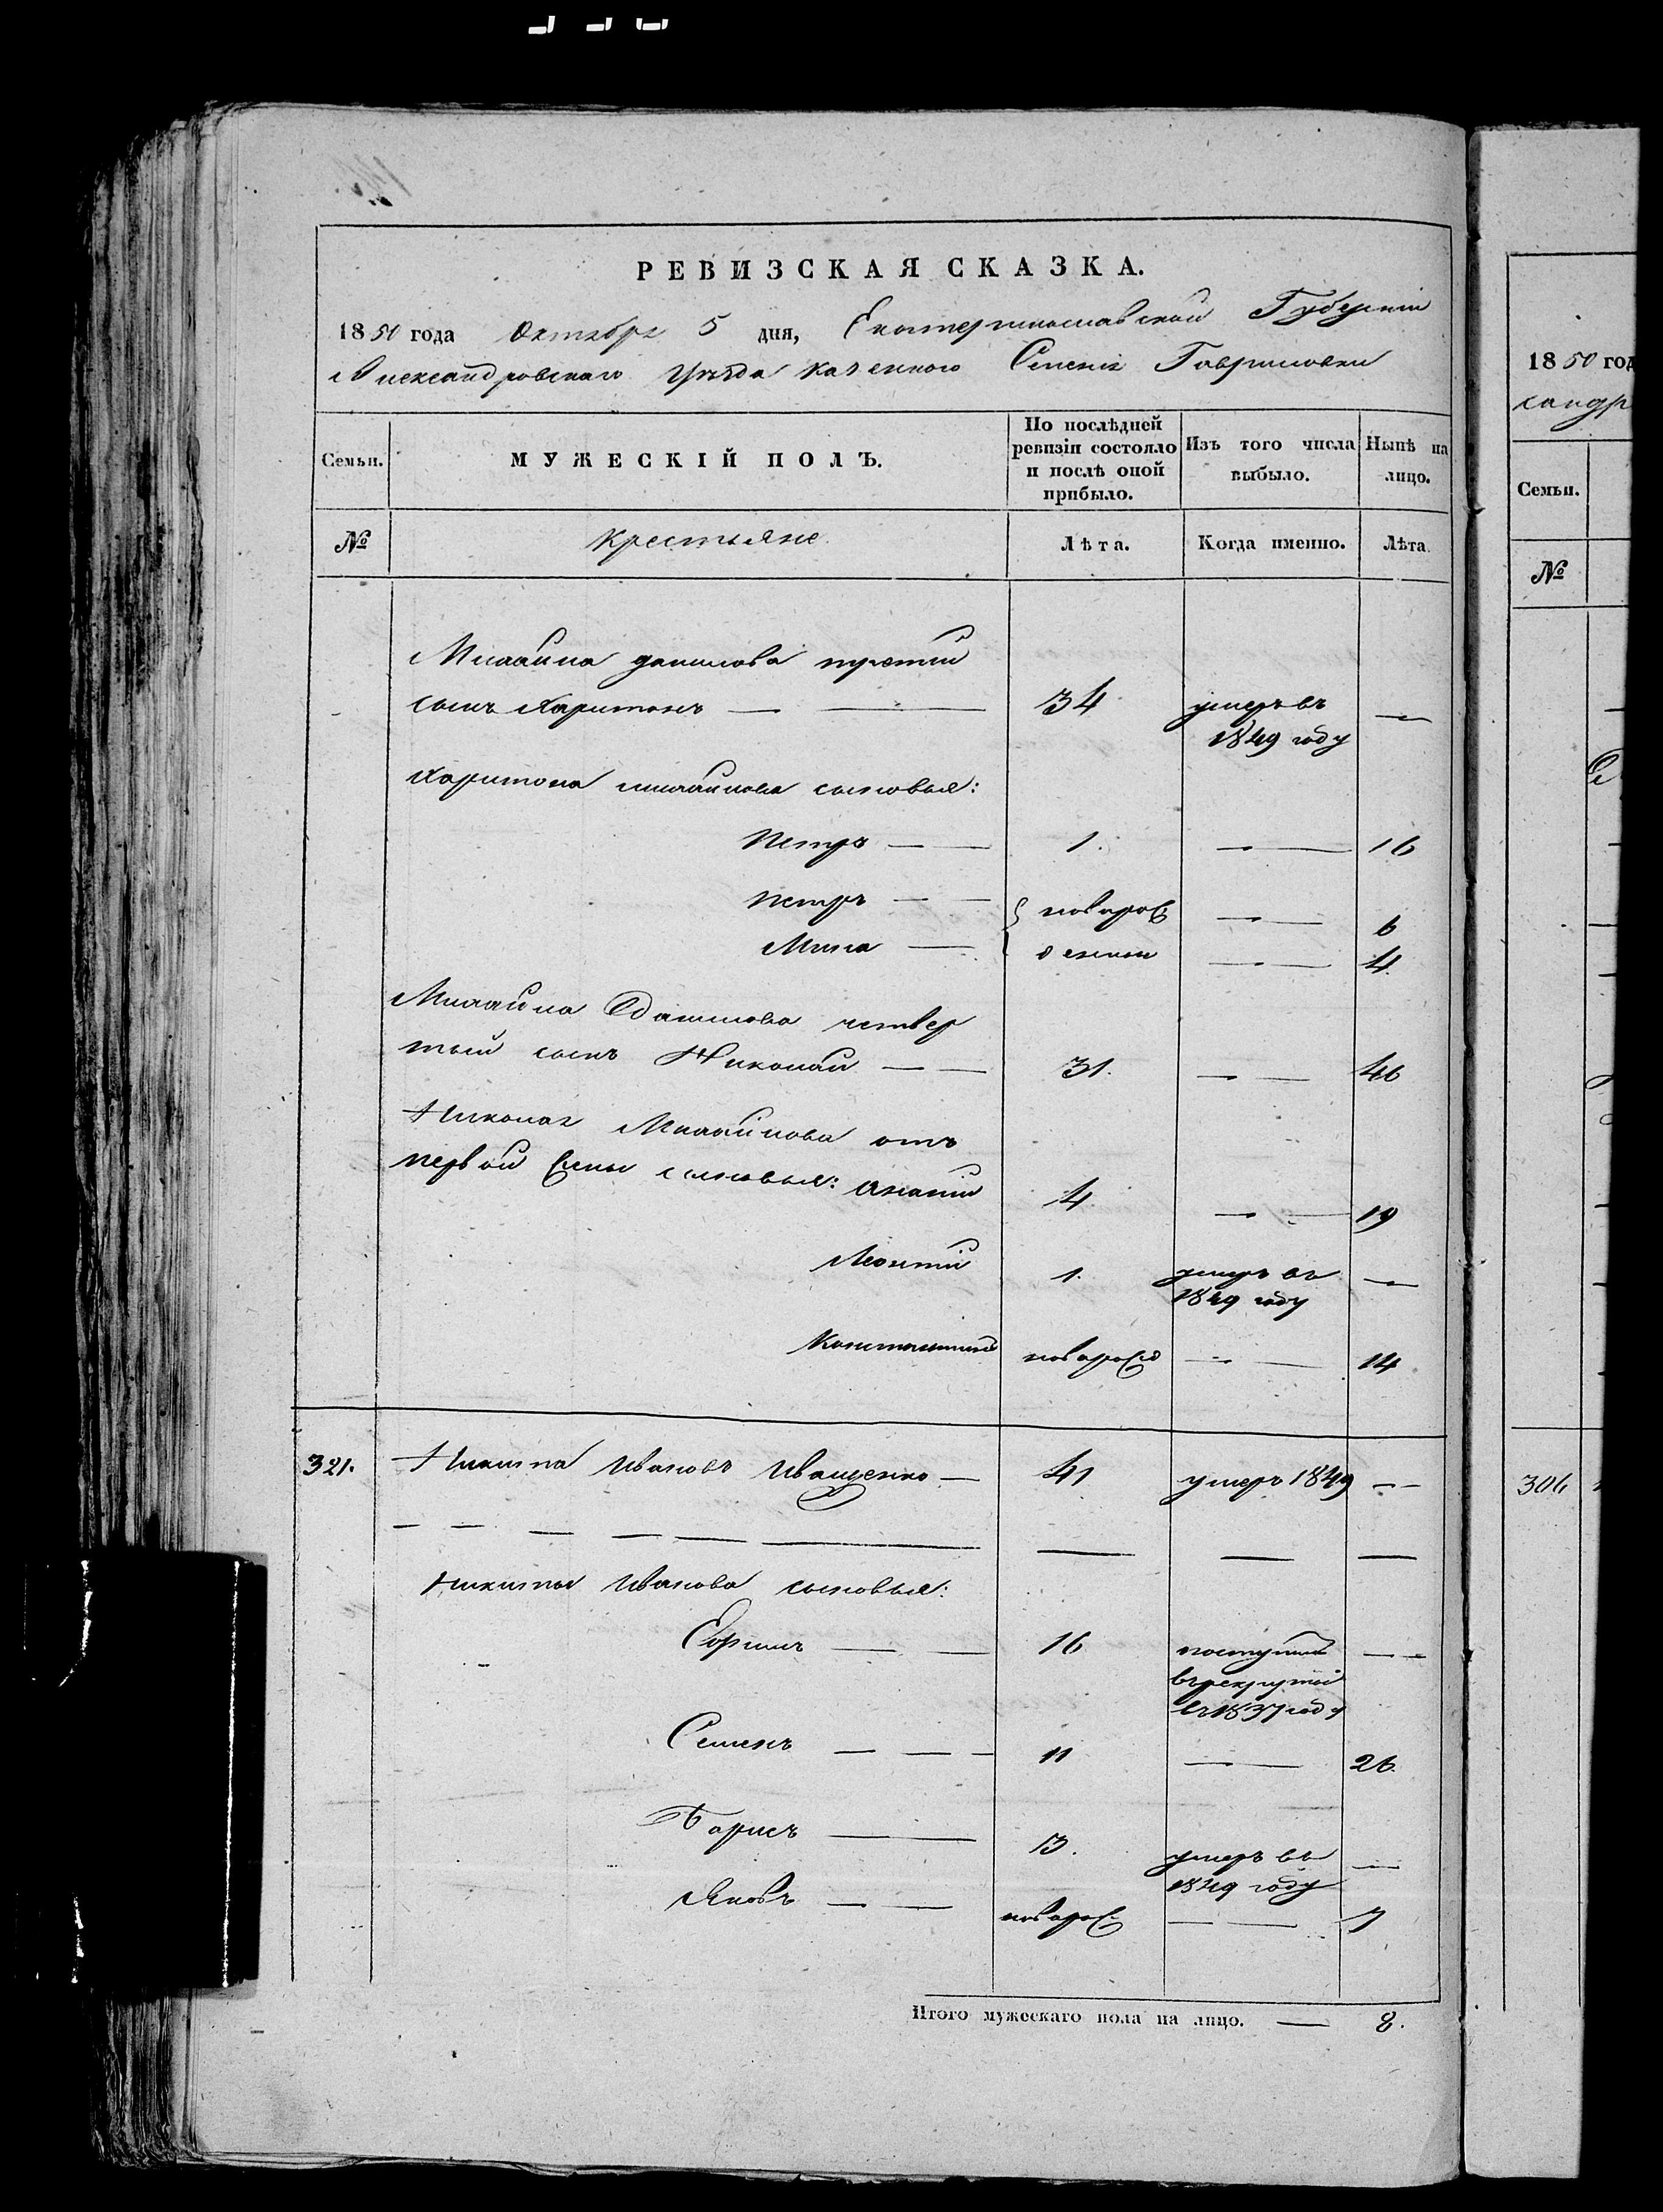 РЕВИЗСКАЯ СКАЗКА.
1850 года Октября 5 дня, Екатеринославской Губернии
Александровскаго уѣзда казенного Селенія Гавриловки
Семьи.
МУЖЕСКІЙ ПОЛЪ.
По послѣдней ревизіи состояло и послѣ оной прибыло.
Изъ того числа выбыло.
Нынѣ на лицо.
№
Крестьяне
Лѣта.
Когда именно.
Лѣта.
Михайла данилова третій
сынъ Харитонъ — — 34 умеръ въ —
1849 году
Харитона михайлова сыновья:
Петръ — — 1. — — 16
Петръ — — новорож — — 6
Мина — денные — — 4
Михайла Данилова четвер
тый сынъ Николай — — 31. — — 46
Николая Михайлова отъ
первой жены сыновья: Ананій 4 — — 19
Леонтій 1. умеръ въ —
1849 году
Константинъ новорожд — — 14
321. Никита Ивановъ Иващенко — 41 умеръ 1849 — —
Никиты Иванова сыновья:
Ефимъ — — 16 поступилъ — —
въ рекруты
въ 1837 году
Семенъ — — — 11 — 26.
Борисъ — умеръ въ —
1849 году
Яковъ — — новорож — — 7
Итого мужескаго пола на лицо. — 8.
1850 год
сандр
Семьи.
№
306